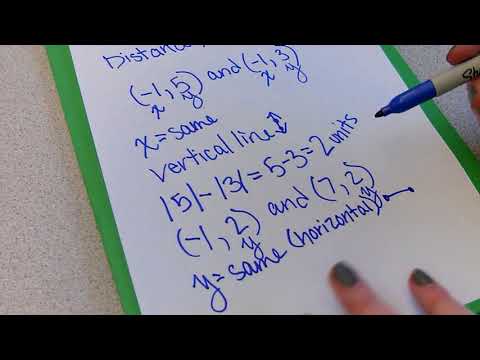 Distance
(-1, 5) and (-1, 3)
x y x y
x = same
vertical line ↕
|5| - |3| = 5 - 3 = 2 units
(-1, 2) and (7, 2)
y y
y = same (horizontal)
Sha